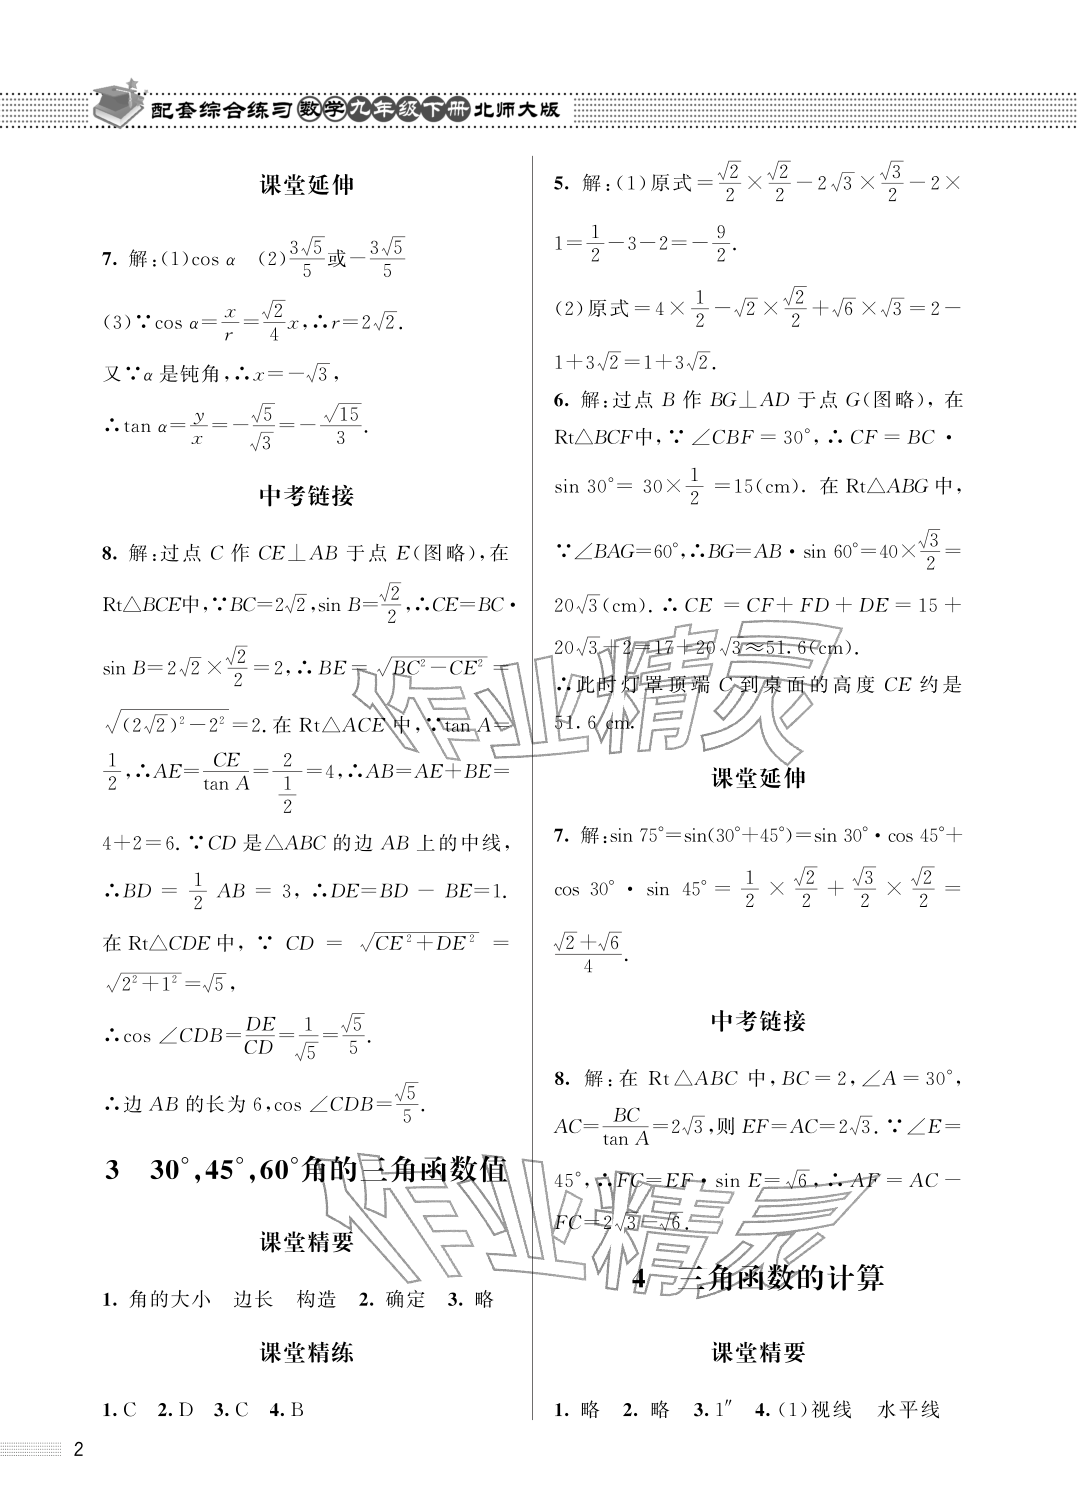 配套综合练习 数学九年级下册 北师大版
课堂延伸
7. 解:(1)cos α (2)3√5/5或-3√5/5
(3)∵cos α=x/r=√2/4 x,∴r=2√2.
又∵α是钝角,∴x=-√3,
∴tan α=y/x=-√5/√3=-√15/3.
中考链接
8. 解:过点 C 作 CE⊥AB 于点 E(图略),在
Rt△BCE中,∵BC=2√2,sin B=√2/2,∴CE=BC·
sin B=2√2×√2/2=2,∴BE=√(BC²-CE²)=
√((2√2)²-2²)=2.在 Rt△ACE 中,∵tan A=
1/2,∴AE=CE/tan A=2/(1/2)=4,∴AB=AE+BE=
4+2=6.∵CD 是△ABC 的边 AB 上的中线,
∴BD=1/2 AB=3,∴DE=BD-BE=1.
在 Rt△CDE 中,∵CD=√(CE²+DE²)=
√(2²+1²)=√5,
∴cos ∠CDB=DE/CD=1/√5=√5/5.
∴边 AB 的长为 6,cos ∠CDB=√5/5.
3 30°,45°,60°角的三角函数值
课堂精要
1. 角的大小 边长 构造 2. 确定 3. 略
课堂精练
1. C 2. D 3. C 4. B
2
5. 解:(1)原式=√2/2×√2/2-2√3×√3/2-2×
1=1/2-3-2=-9/2.
(2)原式=4×1/2-√2×√2/2+√6×√3=2-
1+3√2=1+3√2.
6. 解:过点 B 作 BG⊥AD 于点 G(图略),在
Rt△BCF中,∵∠CBF=30°,∴CF=BC·
sin 30°=30×1/2=15(cm). 在 Rt△ABG 中,
∵∠BAG=60°,∴BG=AB·sin 60°=40×√3/2=
20√3(cm).∴CE=CF+FD+DE=15+
20√3+2=17+20√3≈51.6(cm).
∴此时灯罩顶端 C 到桌面的高度 CE 约是
51.6 cm.
课堂延伸
7. 解:sin 75°=sin(30°+45°)=sin 30°·cos 45°+
cos 30°·sin 45°=1/2×√2/2+√3/2×√2/2=
(√2+√6)/4.
中考链接
8. 解:在 Rt△ABC 中,BC=2,∠A=30°,
AC=BC/tan A=2√3,则 EF=AC=2√3.∵∠E=
45°,∴FC=EF·sin E=√6,∴AF=AC-
FC=2√3-√6.
4 三角函数的计算
课堂精要
1. 略 2. 略 3. 1″ 4. (1)视线 水平线
作业精灵
作业精灵